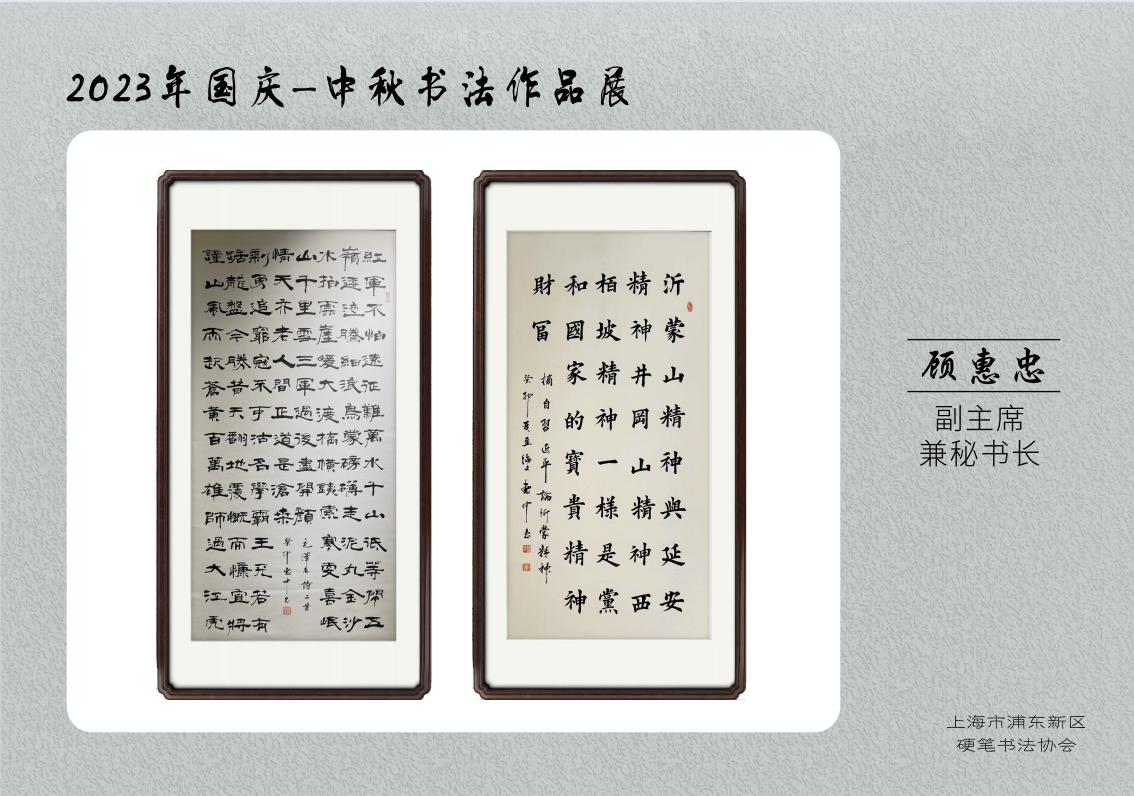 2023年国庆-中秋书法作品展
紅軍不怕遠征難萬水千山祇等閒五
嶺逶迤騰細浪烏蒙磅礴走泥丸金沙
水拍雲崖暖大渡橋橫鐵索寒更喜岷
山千里雪三軍過後盡開顏
毛澤東詩二首
鐘山風雨起蒼黃百萬雄師過大江虎
踞龍盤今勝昔天翻地覆慨而慷宜將
剩勇追窮寇不可沽名學霸王天若有
情天亦老人間正道是滄桑
沂蒙山精神與延安
精神井岡山精神西
栢坡精神一樣是黨
和國家的寶貴精神
財冨
摘自習近平論沂蒙精神
顾惠忠
副主席
兼秘书长
上海市浦东新区
硬笔书法协会